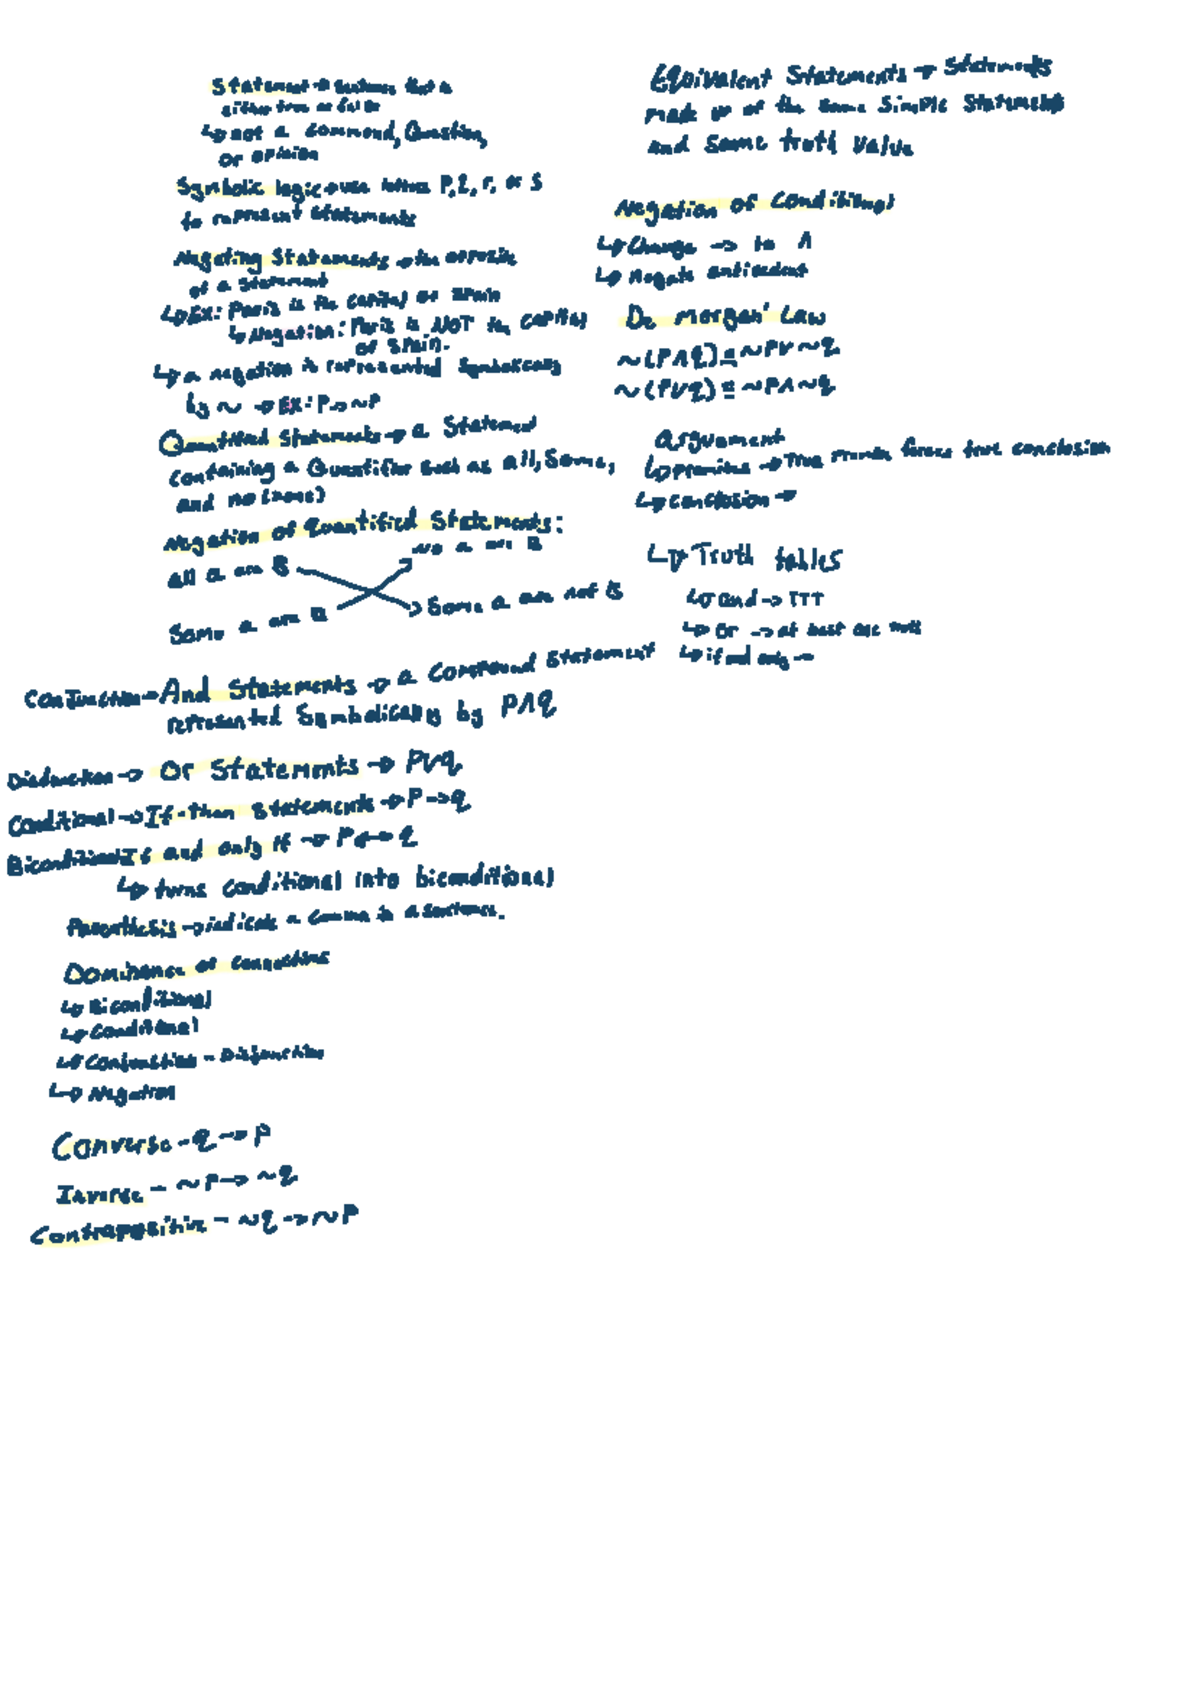 Statement → sentence that is
either true or false
↳ not a command, Question,
or opinion
Symbolic logic → use letters P, q, r, or S
to represent statements
Negating Statements → the opposite
of a statement
↳ EX: Paris is the capital of Spain
↳ Negation: Paris is NOT the capital
of Spain.
↳ a negation is represented Symbolically
by ~ → EX: P → ~P
Quantified Statements → a Statement
containing a Quantifier such as all, Some,
and no (none)
Negation of Quantified Statements:
all a are B
no a are B
Some a are B
Some a are not B
Conjunction → And Statements → a Compound Statement
represented Symbolically by P∧q
Disjunction → Or Statements → P∨q
Conditional → If-then Statements → P→q
Biconditional If and only if → P↔q
↳ turns conditional into biconditional
Parenthesis → indicate a comma in a sentence.
Dominance of connectives
↳ Biconditional
↳ Conditional
↳ Conjunction - Disjunction
↳ Negation
Converse - q → P
Inverse - ~P → ~q
Contrapositive - ~q → ~P
Equivalent Statements → Statements
made up of the same Simple Statements
and Same truth value
Negation of Conditional
↳ Change → to ∧
↳ Negate anticedent
De morgan' Law
~(P∧q) ≡ ~P∨~q
~(P∨q) ≡ ~P∧~q
arguement
↳ premises → True forces true conclusion
↳ conclusion →
↳ Truth tables
↳ and → TTT
↳ Or → at least one
↳ if and only →